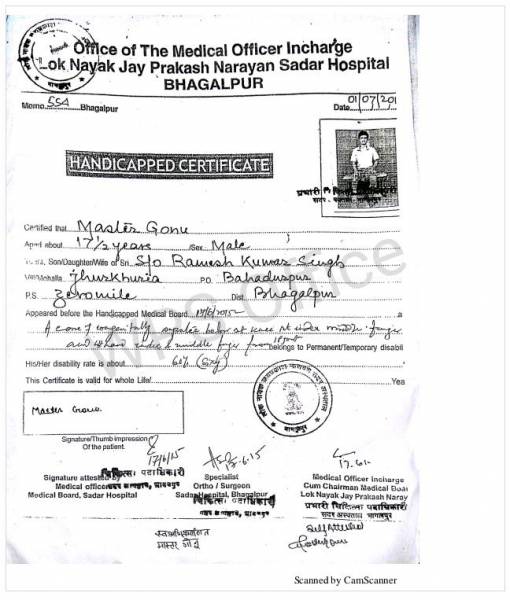 Office of The Medical Officer Incharge
Lok Nayak Jay Prakash Narayan Sadar Hospital
BHAGALPUR
Memo 554 Bhagalpur
Date 01/07/201
HANDICAPPED CERTIFICATE
प्रभारी चिकित्सा पदाधिकारी
सदर अस्पताल, भागलपुर
Certified that Master Gonu
Aged about 17½ years Sex Male
Son/Daughter/Wife of Sri S/o Ramesh Kumar Singh
Vill/Mohalla Jhurkhuria P.O. Bahadurpur
P.S. Zeromile Dist Bhagalpur
Appeared before the Handicapped Medical Board a
A case of congenitally
and middle finger from belongs to Permanent/Temporary disabil
His/Her disability rate is about 60% (Sixty)
This Certificate is valid for whole Life/ Yea
Master Gonu
Signature/Thumb impression
Of the patient.
17/6/15
Signature attested by
Medical Officer
Medical Board, Sadar Hospital
15.6.15
Specialist
Ortho / Surgeon
Sadar Hospital, Bhagalpur
Medical Officer Incharge
Cum Chairman Medical Boar
Lok Nayak Jay Prakash Naray
प्रभारी चिकित्सा पदाधिकारी
सदर अस्पताल भागलपुर
Self Attested
स्वअभिप्रमाणित
मास्टर गोनू
Scanned by CamScanner